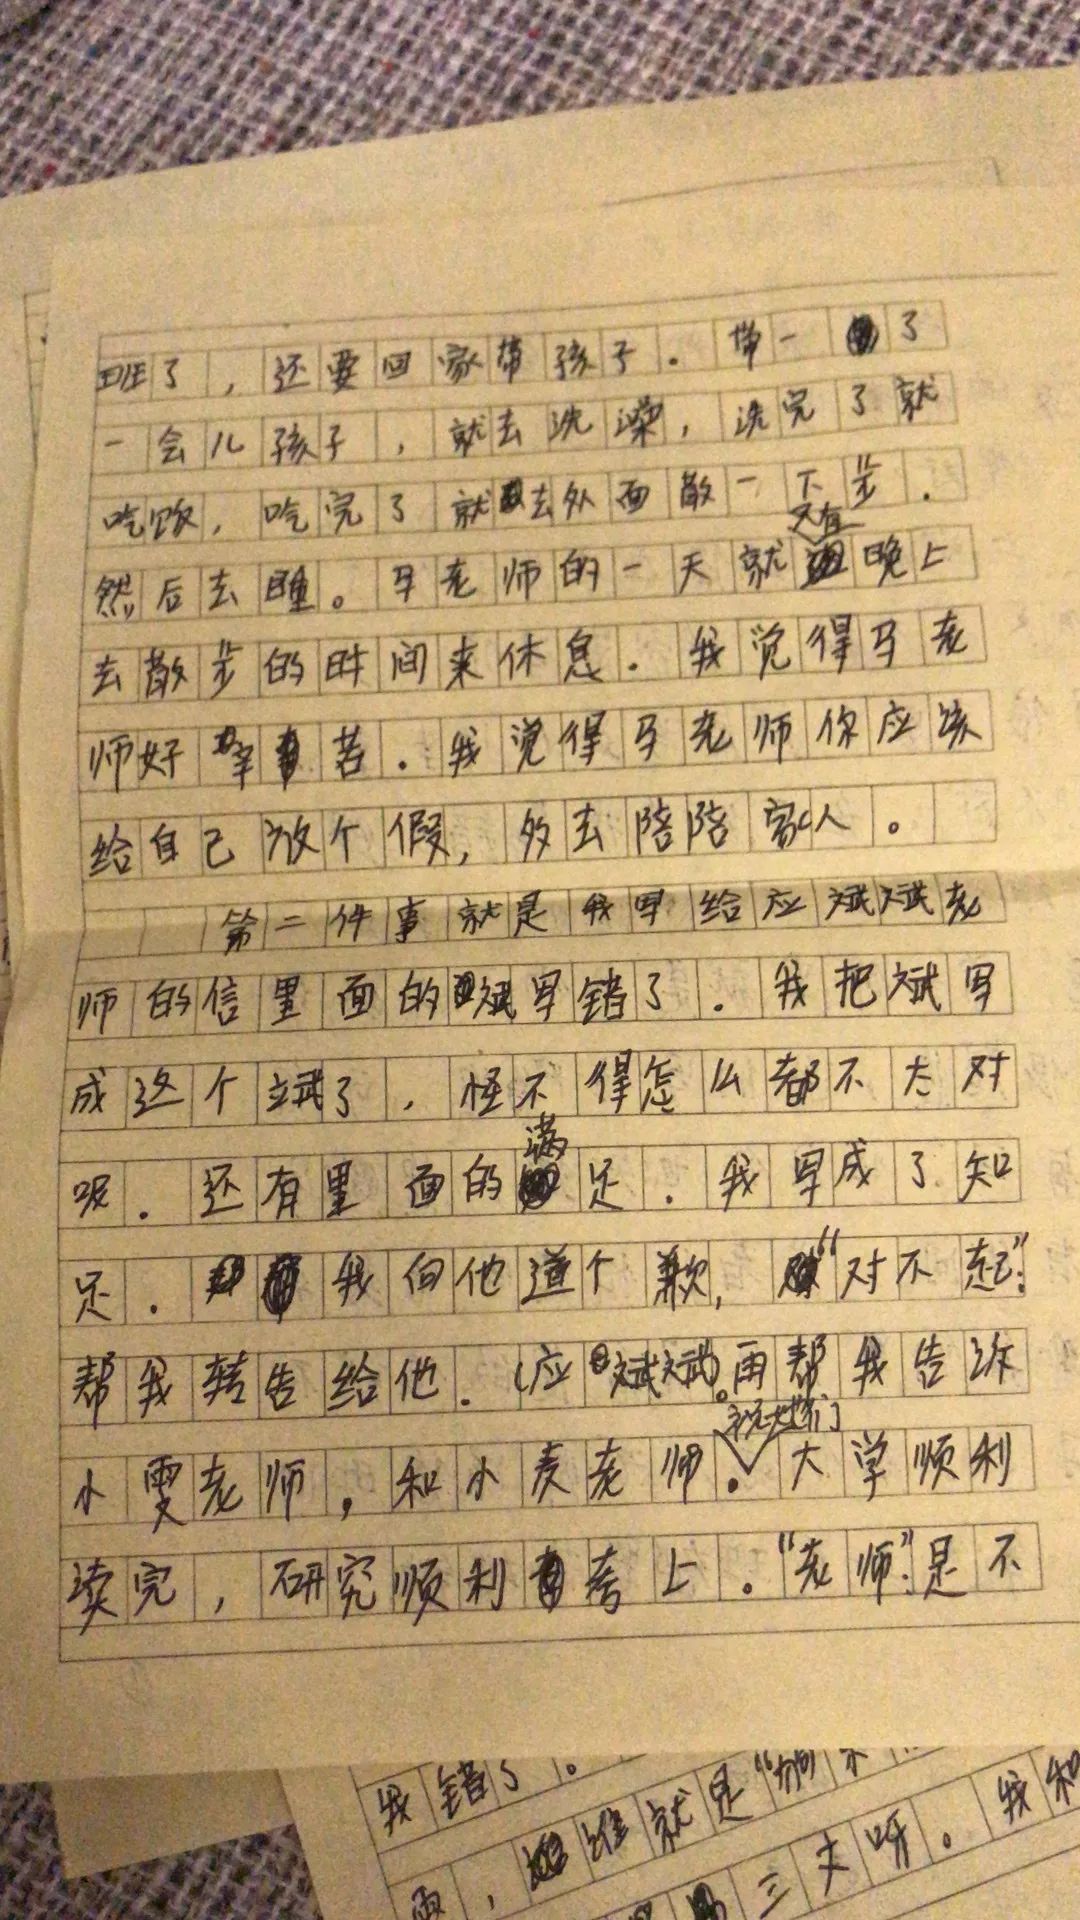 班了，还要回家带孩子。带一了
一会儿孩子，就去洗澡，洗完了就
吃饭，吃完了就去外面散一下步。
然后去睡。马老师的一天就只有晚上
去散步的时间来休息。我觉得马老
师好辛苦。我觉得马老师你应该
给自己放个假，多去陪陪家人。
第二件事就是我写给应斌斌老
师的信里面的斌写错了。我把斌写
成这个斌了，怪不得怎么都不太对
呢。还有里面的满足。我写成了知
足。我向他道个歉，“对不起”：
帮我转告给他。（应斌斌）。再帮我告诉
小雯老师，和小麦老师。祝她们大学顺利
读完，研究顺利考上。“老师”：是不
我错了。
雨，谁就是
三天呀。我和